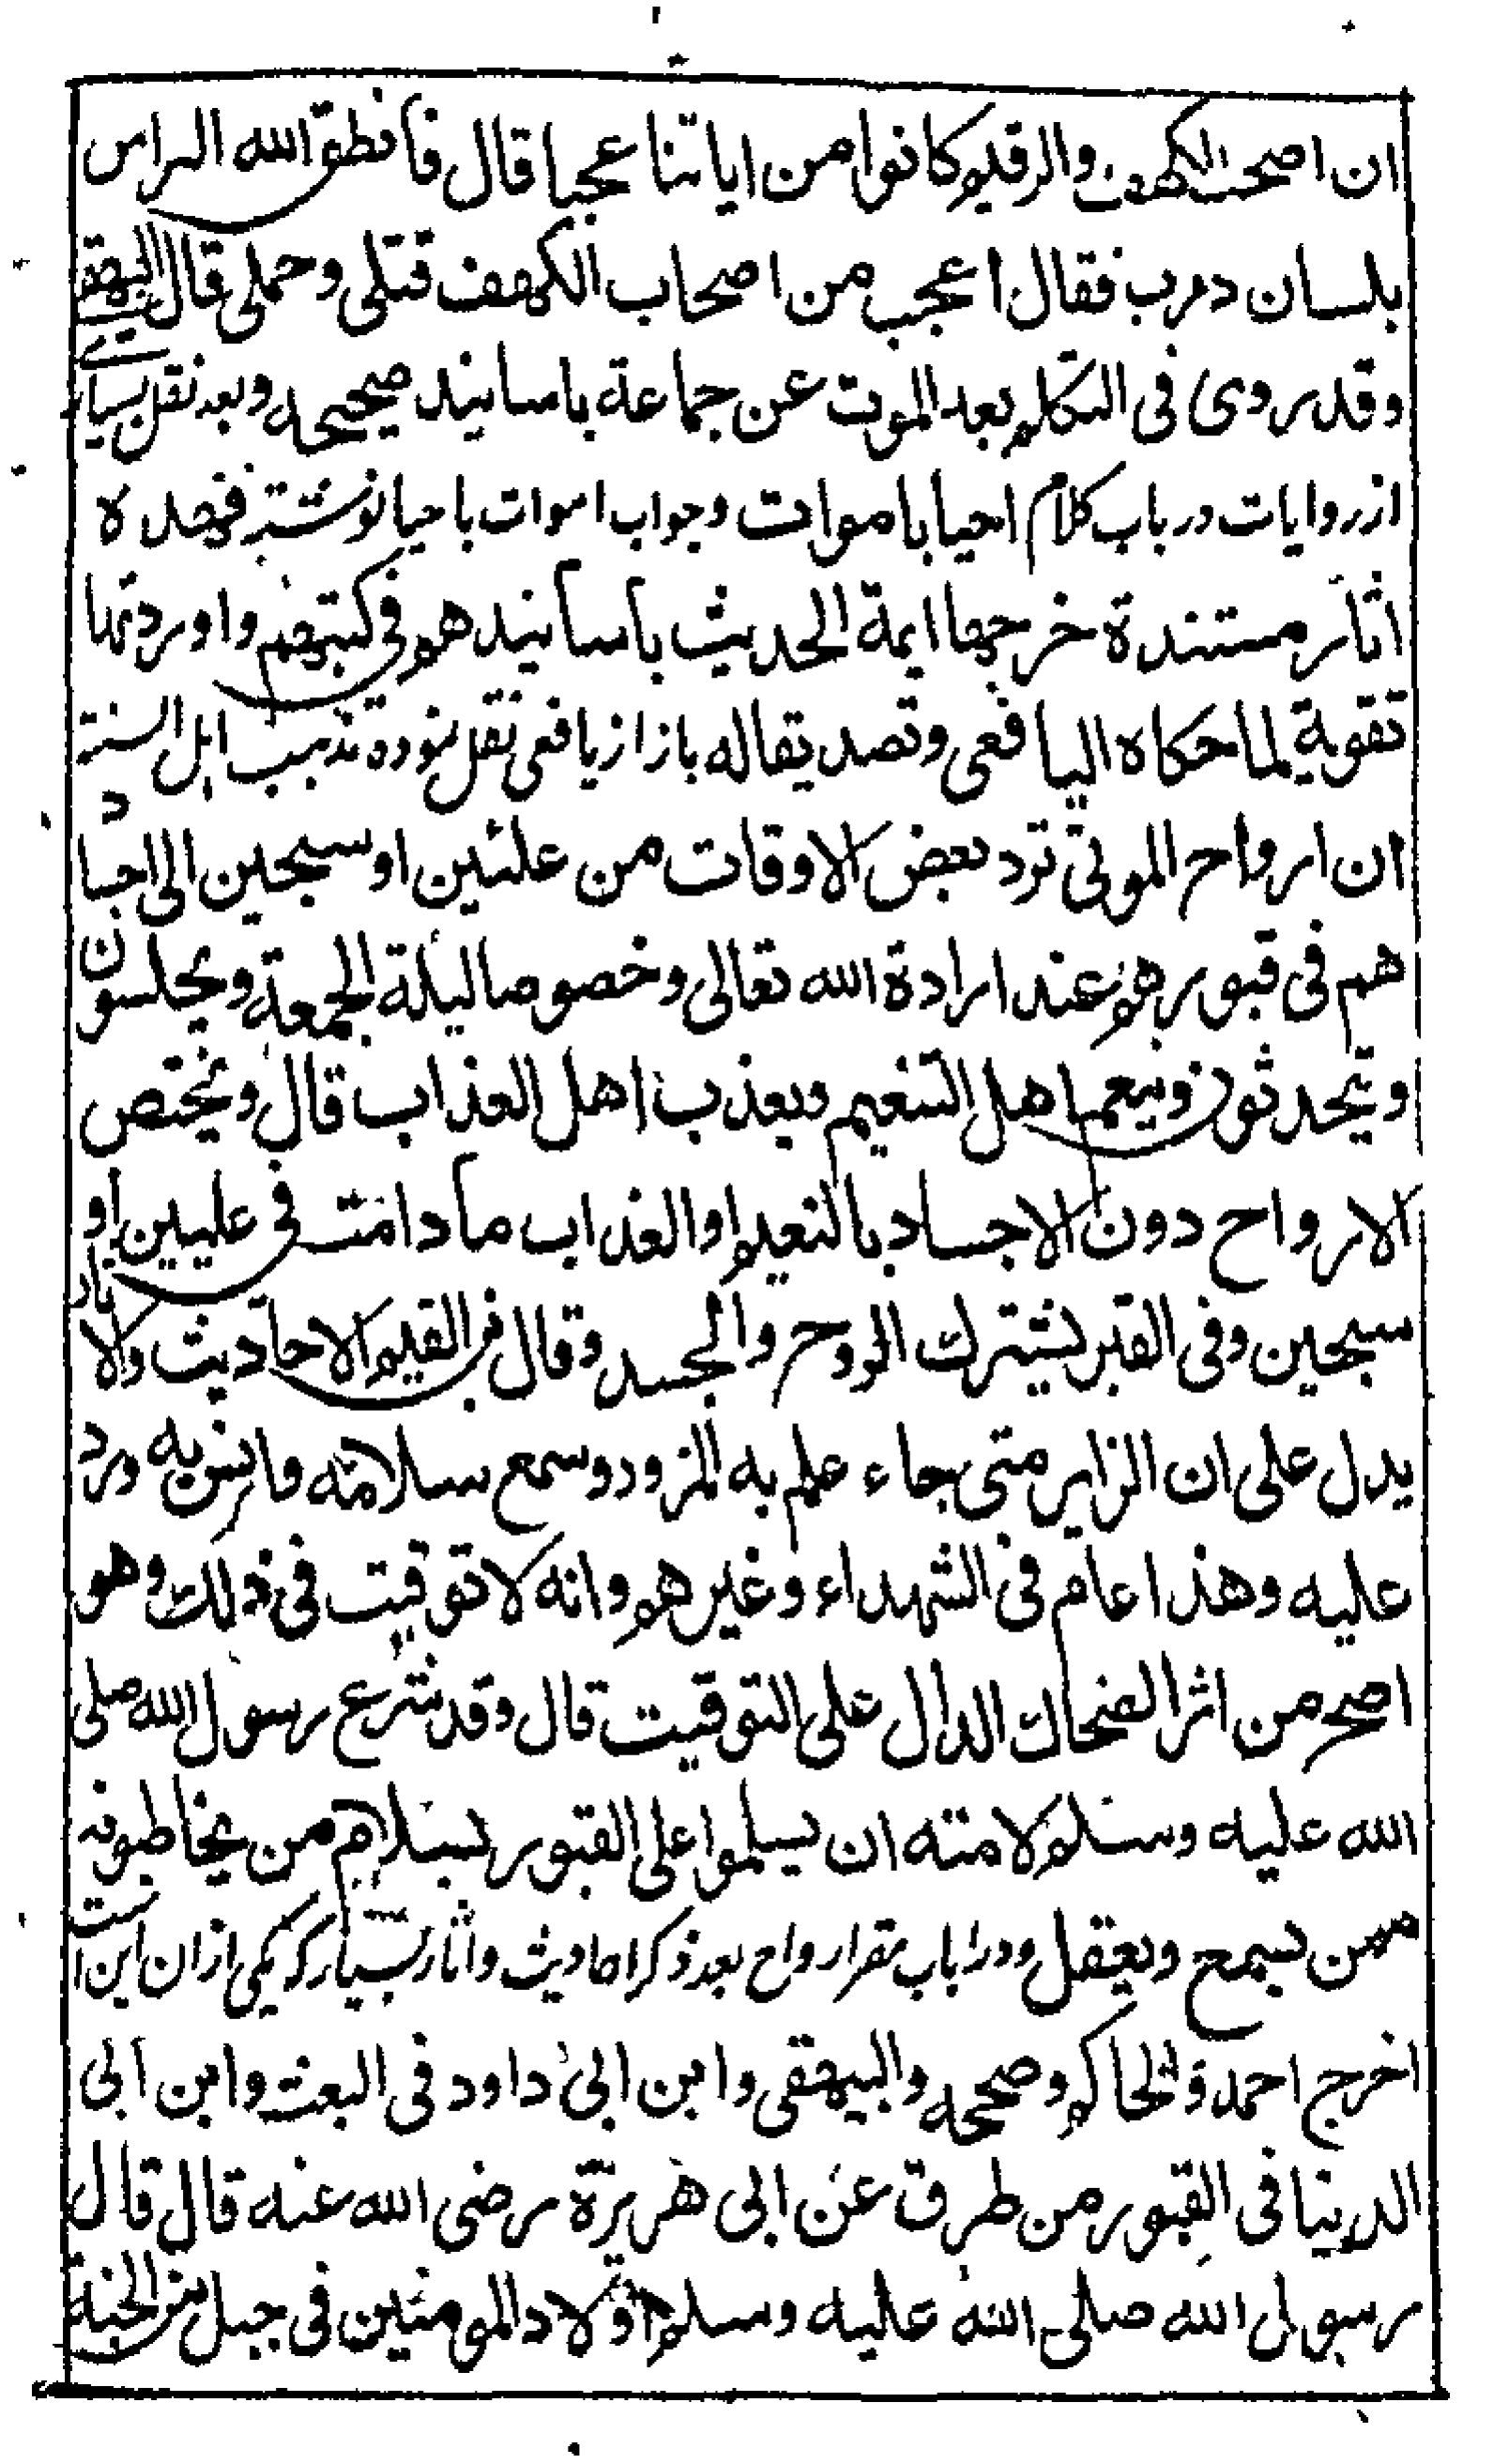 ان اصحب الكهف والرقيم كانوا من اياتنا عجبا قال فانطق الله الراس
بلسان درب فقال اعجب من اصحاب الكهف قتلى وحملى قال البيهقى
وقد روى فى التكلم بعد الموت عن جماعة باسانيد صحيحه وبعد نقل بسيارے
از روایات در باب کلام احیا باموات وجواب اموات باحیا نوشته فهده
اثار مستندة خرجها ايمة الحديث باسانيدهم فى كتبهم واوردتها
تقوية لما حكاه اليافعى وتصديقا له باز از یافعی نقل نموده مذهب اهل السنة
ان ارواح الموتى ترد بعض الاوقات من علئين او سجين الى اجساد
هم فى قبورهم عند ارادة الله تعالى وخصوصا ليلة الجمعة ويجلسون
ويتحدثون وينعم اهل التنعيم ويعذب اهل العذاب قال ويختص
الارواح دون الاجساد بالنعيم او العذاب ما دامت فى عليين او
سجين وفى القبر يشترك الروح والجسد وقال بن القيم الاحاديث والاثار
يدل على ان الزاير متى جاء علم به المزور وسمع سلامه وانس به ورد
عليه وهذا عام فى الشهداء وغيرهم وانه لا توقيت فى ذلك وهو
اصح من اثر الضحاك الدال على التوقيت قال وقد شرع رسول الله صلى
الله عليه وسلم لامته ان يسلموا على القبور بسلام من يخاطبونه
ممن يسمع ويعقل ودر باب مقر ارواح بعد ذکر احادیث واثار بسیار که یکی ازان این است
اخرج احمد والحاكم وصححه والبيهقى وابن ابى داود فى البعث وابن ابى
الدينا فى القبور من طرق عن ابى هريرة رضى الله عنه قال قال
رسول الله صلى الله عليه وسلم اولاد المومنين فى جبل من الجنة